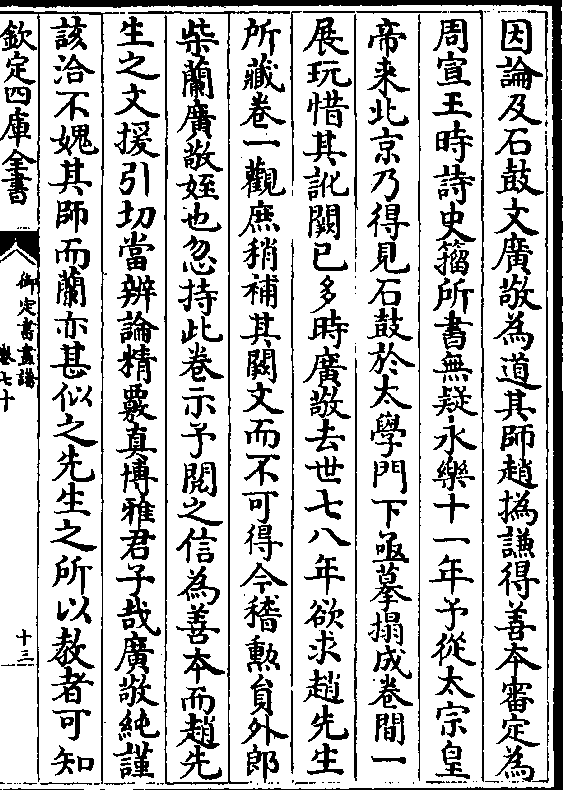 因論及石鼓文廣敬為道其師趙撝謙得善本審定為
周宣王時詩史籀所書無疑永樂十一年予從太宗皇
帝來北京乃得見石鼓於太學門下亟摹搨成卷間一
展玩惜其訛闕已多時廣敬去世七八年欲求趙先生
所藏卷一觀庶稍補其闕文而不可得今稽勲員外郎
柴蘭廣敬姪也忽持此卷示予閱之信為善本而趙先
生之文援引切當辨論精覈真博雅君子哉廣敬純謹
該洽不媿其師而蘭亦甚似之先生之所以教者可知
欽定四庫全書
御定書畫譜
卷七十
十三